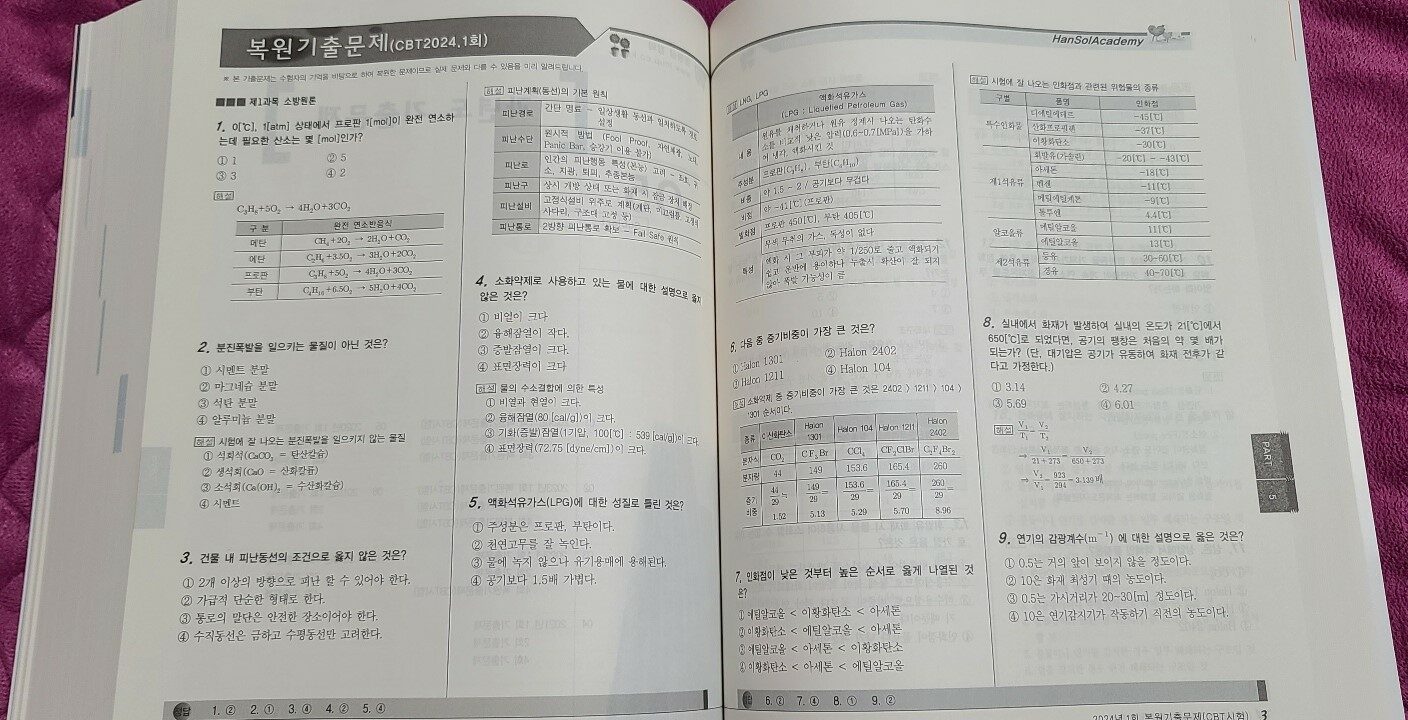 복원기출문제(CBT2024.1회)
※ 본 기출문제는 수험자의 기억을 바탕으로 하여 복원한 문제이므로 실제 문제와 다를 수 있음을 미리 알려드립니다.
■■■ 제1과목 소방원론
1. 0[℃], 1[atm] 상태에서 프로판 1[mol]이 완전 연소하
는데 필요한 산소는 몇 [mol]인가?
① 1 ② 5
③ 3 ④ 2
해설
C₃H₈+5O₂ → 4H₂O+3CO₂
구 분 완전 연소반응식
메탄 CH₄+2O₂ → 2H₂O+CO₂
에탄 C₂H₆+3.5O₂ → 3H₂O+2CO₂
프로판 C₃H₈+5O₂ → 4H₂O+3CO₂
부탄 C₄H₁₀+6.5O₂ → 5H₂O+4CO₂
2. 분진폭발을 일으키는 물질이 아닌 것은?
① 시멘트 분말
② 마그네슘 분말
③ 석탄 분말
④ 알루미늄 분말
해설 시험에 잘 나오는 분진폭발을 일으키지 않는 물질
① 석회석(CaCO₃ = 탄산칼슘)
② 생석회(CaO = 산화칼륨)
③ 소석회(Ca(OH)₂ = 수산화칼슘)
④ 시멘트
3. 건물 내 피난동선의 조건으로 옳지 않은 것은?
① 2개 이상의 방향으로 피난 할 수 있어야 한다.
② 가급적 단순한 형태로 한다.
③ 통로의 말단은 안전한 장소이어야 한다.
④ 수직동선은 금하고 수평동선만 고려한다.
해설 피난계획(동선)의 기본 원칙
피난경로 간단 명료 - 일상생활 동선과 일치하도록 계획
설정
피난수단 원시적 방법 (Fool Proof, 자연채광, 노대,
Panic Bar, 승강기 이용 불가)
피난로 인간의 피난행동 특성(본능) 고려 - 좌회, 귀
소, 지광, 퇴피, 추종본능
피난구 상시 개방 상태 또는 화재 시 잠금 장치 해정
피난설비 고정식설비 위주로 계획(계단, 미끄럼틀, 고정식
사다리, 구조대 고정 등)
피난통로 2방향 피난통로 확보 - Fail Safe 원칙
4. 소화약제로 사용하고 있는 물에 대한 설명으로 옳지
않은 것은?
① 비열이 크다
② 융해잠열이 작다.
③ 증발잠열이 크다.
④ 표면장력이 크다
해설 물의 수소결합에 의한 특성
① 비열과 현열이 크다.
② 융해잠열(80 [cal/g])이 크다.
③ 기화(증발)잠열(1기압, 100[℃] : 539 [cal/g])이 크다.
④ 표면장력(72.75 [dyne/cm])이 크다.
5. 액화석유가스(LPG)에 대한 성질로 틀린 것은?
① 주성분은 프로판, 부탄이다.
② 천연고무를 잘 녹인다.
③ 물에 녹지 않으나 유기용매에 용해된다.
④ 공기보다 1.5배 가볍다.
정답 1. ② 2. ① 3. ④ 4. ② 5. ④
HanSolAcademy
해설 LNG, LPG
액화석유가스
(LPG : Liquefied Petroleum Gas)
내 용 원유를 채취하거나 원유 정제시 나오는 탄화수
소를 비교적 낮은 압력(0.6~0.7[MPa])을 가하
여 냉각, 액화시킨 것
주성분 프로판(C₃H₈), 부탄(C₄H₁₀)
비중 약 1.5 ~ 2 / 공기보다 무겁다
비점 약 -41[℃](프로판)
발화점 프로판 450[℃], 부탄 405[℃]
특성 무색 무취의 가스, 독성이 없다
액화 시 그 부피가 약 1/250로 줄고 액화되기
쉽고 운반에 용이하나 누출시 확산이 잘 되지
않아 폭발 가능성이 큼
6. 다음 중 증기비중이 가장 큰 것은?
① Halon 1301 ② Halon 2402
③ Halon 1211 ④ Halon 104
해설 소화약제 중 증기비중이 가장 큰 것은 2402 〉 1211 〉 104 〉
1301 순서이다.
종류 이산화탄소 Halon 1301 Halon 104 Halon 1211 Halon 2402
분자식 CO₂ CF₃Br CCl₄ CF₂ClBr C₂F₄Br₂
분자량 44 149 153.6 165.4 260
증기 비중 44/29= 149/29= 153.6/29= 165.4/29= 260/29=
1.52 5.13 5.29 5.70 8.96
7. 인화점이 낮은 것부터 높은 순서로 옳게 나열된 것
은?
① 에틸알코올 < 이황화탄소 < 아세톤
② 이황화탄소 < 에틸알코올 < 아세톤
③ 에틸알코올 < 아세톤 < 이황화탄소
④ 이황화탄소 < 아세톤 < 에틸알코올
해설 시험에 잘 나오는 인화점과 관련된 위험물의 종류
구별 품명 인화점
특수인화물 디에틸에테르 -45[℃]
산화프로필렌 -37[℃]
이황화탄소 -30[℃]
제1석유류 휘발유(가솔린) -20[℃] ~ -43[℃]
아세톤 -18[℃]
벤젠 -11[℃]
메틸에틸케톤 -9[℃]
톨루엔 4.4[℃]
알코올류 메틸알코올 11[℃]
에틸알코올 13[℃]
제2석유류 등유 30~60[℃]
경유 40~70[℃]
8. 실내에서 화재가 발생하여 실내의 온도가 21[℃]에서
650[℃]로 되었다면, 공기의 팽창은 처음의 약 몇 배가
되는가? (단, 대기압은 공기가 유동하여 화재 전후가 같
다고 가정한다.)
① 3.14 ② 4.27
③ 5.69 ④ 6.01
해설 V₁/T₁ = V₂/T₂
⇒ V₁/(21+273) = V₂/(650+273)
⇒ V₂/V₁ = 923/294 = 3.139배
9. 연기의 감광계수(m⁻¹) 에 대한 설명으로 옳은 것은?
① 0.5는 거의 앞이 보이지 않을 정도이다.
② 10은 화재 최성기 때의 농도이다.
③ 0.5는 가시거리가 20~30[m] 정도이다.
④ 10은 연기감지기가 작동하기 직전의 농도이다.
PART 5
정답 6. ② 7. ④ 8. ① 9. ②
2024년 1회 복원기출문제(CBT시험) 3